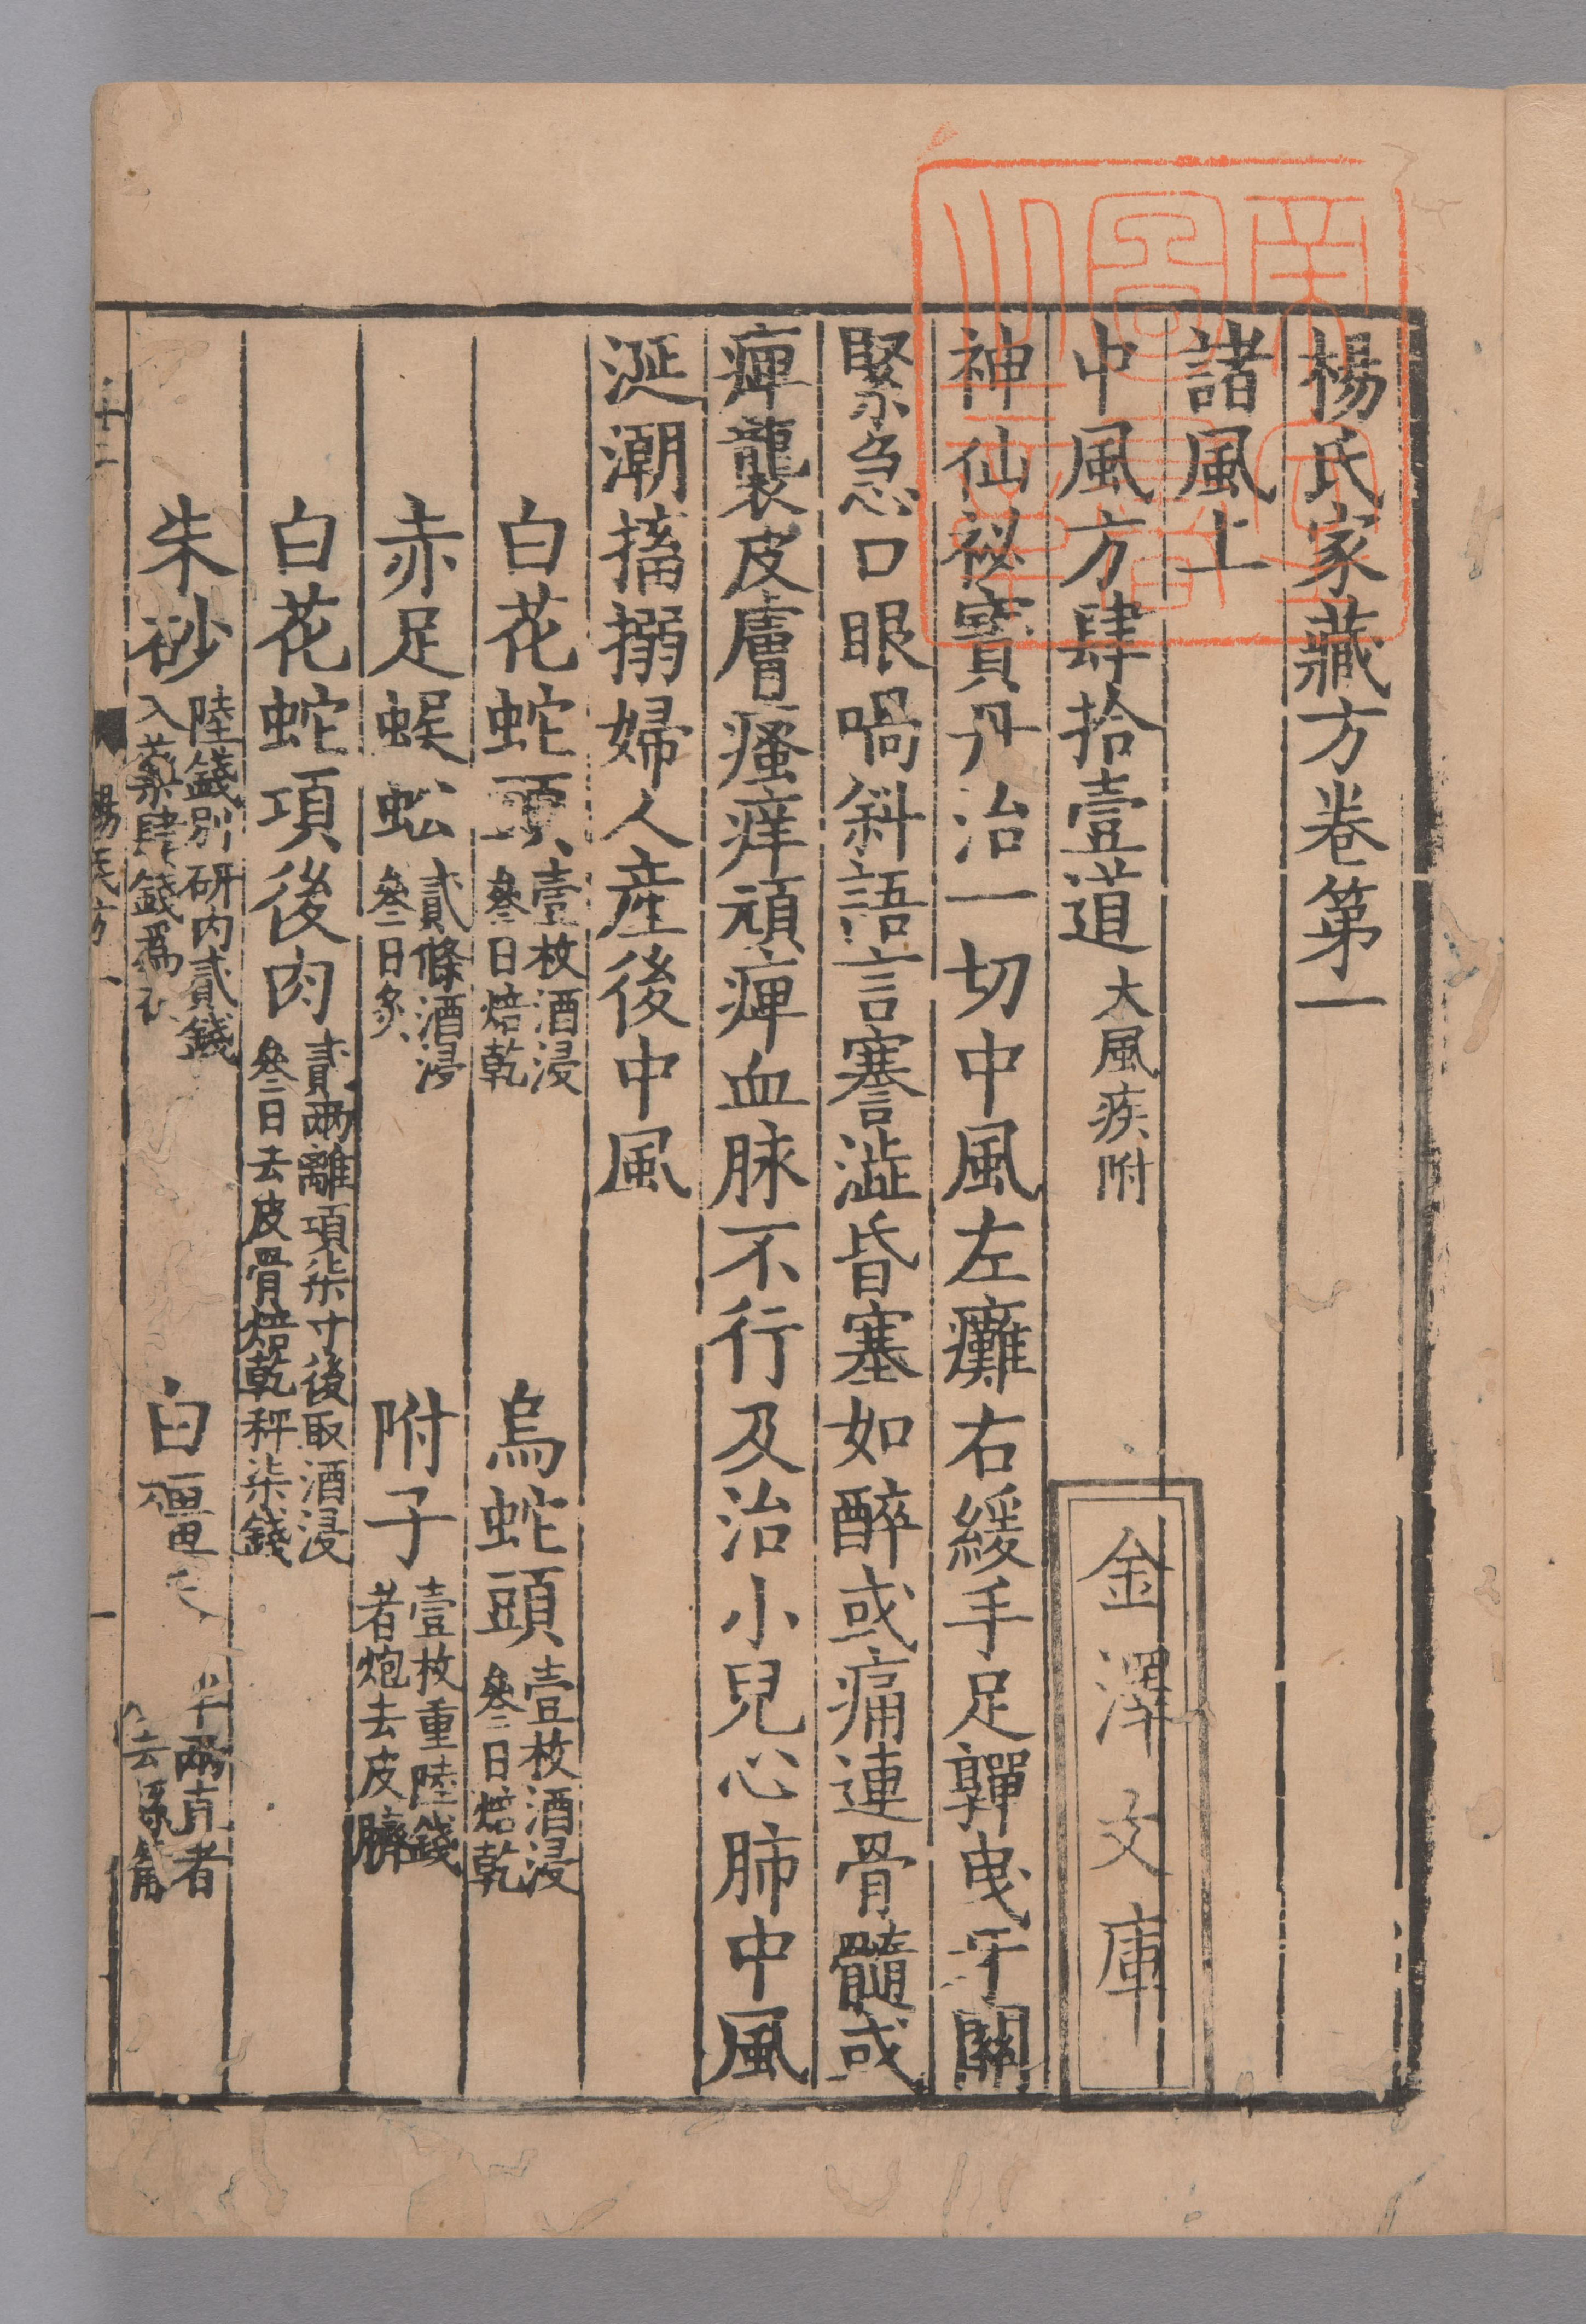 楊氏家藏方卷第一
諸風上
中風方肆拾壹道 大風疾附
神仙祕寶丹治一切中風左癱右緩手足嚲曳牙關
緊急口眼喎斜語言謇澁昏塞如醉或痛連骨髓或
痺襲皮膚瘙痒頑痺血脉不行及治小兒心肺中風
涎潮搐搦婦人產後中風
白花蛇頭 壹枚酒浸叄日焙乾 烏蛇頭 壹枚酒浸叄日焙乾
赤足蜈蚣 貳條酒浸叄日炙 附子 壹枚重陸錢者炮去皮臍
白花蛇項後肉 貳兩離項柒寸後取酒浸叄日去皮骨焙乾秤柒錢
朱砂 陸錢別研內貳錢入藥肆錢爲衣 白殭 半兩直者去
楊氏方一
一
金澤文庫